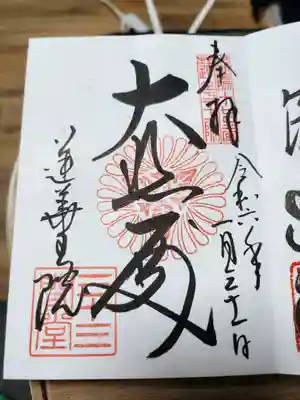 奉拝
令和六年一月
大悲殿
蓮華王院
三十三間堂